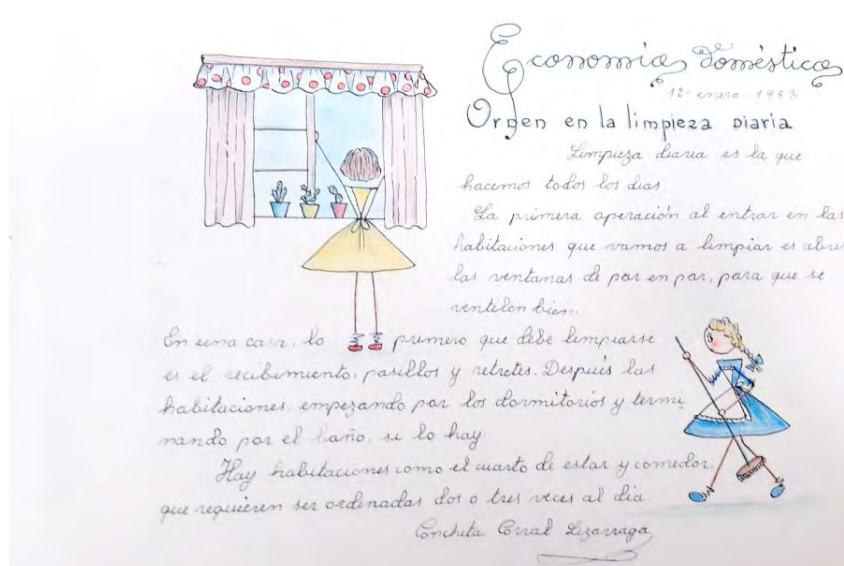 Economía doméstica
12-enero-1953
Orden en la limpieza diaria
Limpieza diaria es la que
hacemos todos los dias
La primera operación al entrar en las
habitaciones que vamos a limpiar es abrir
las ventanas de par en par, para que se
ventilen bien.
En una casa, lo primero que debe limpiarse
es el recibimiento, pasillos y retretes. Después las
habitaciones, empezando por los dormitorios y termi
nando por el baño, si lo hay.
Hay habitaciones como el cuarto de estar y comedor,
que requieren ser ordenadas dos o tres veces al dia
Conchita Corral Lizarraga